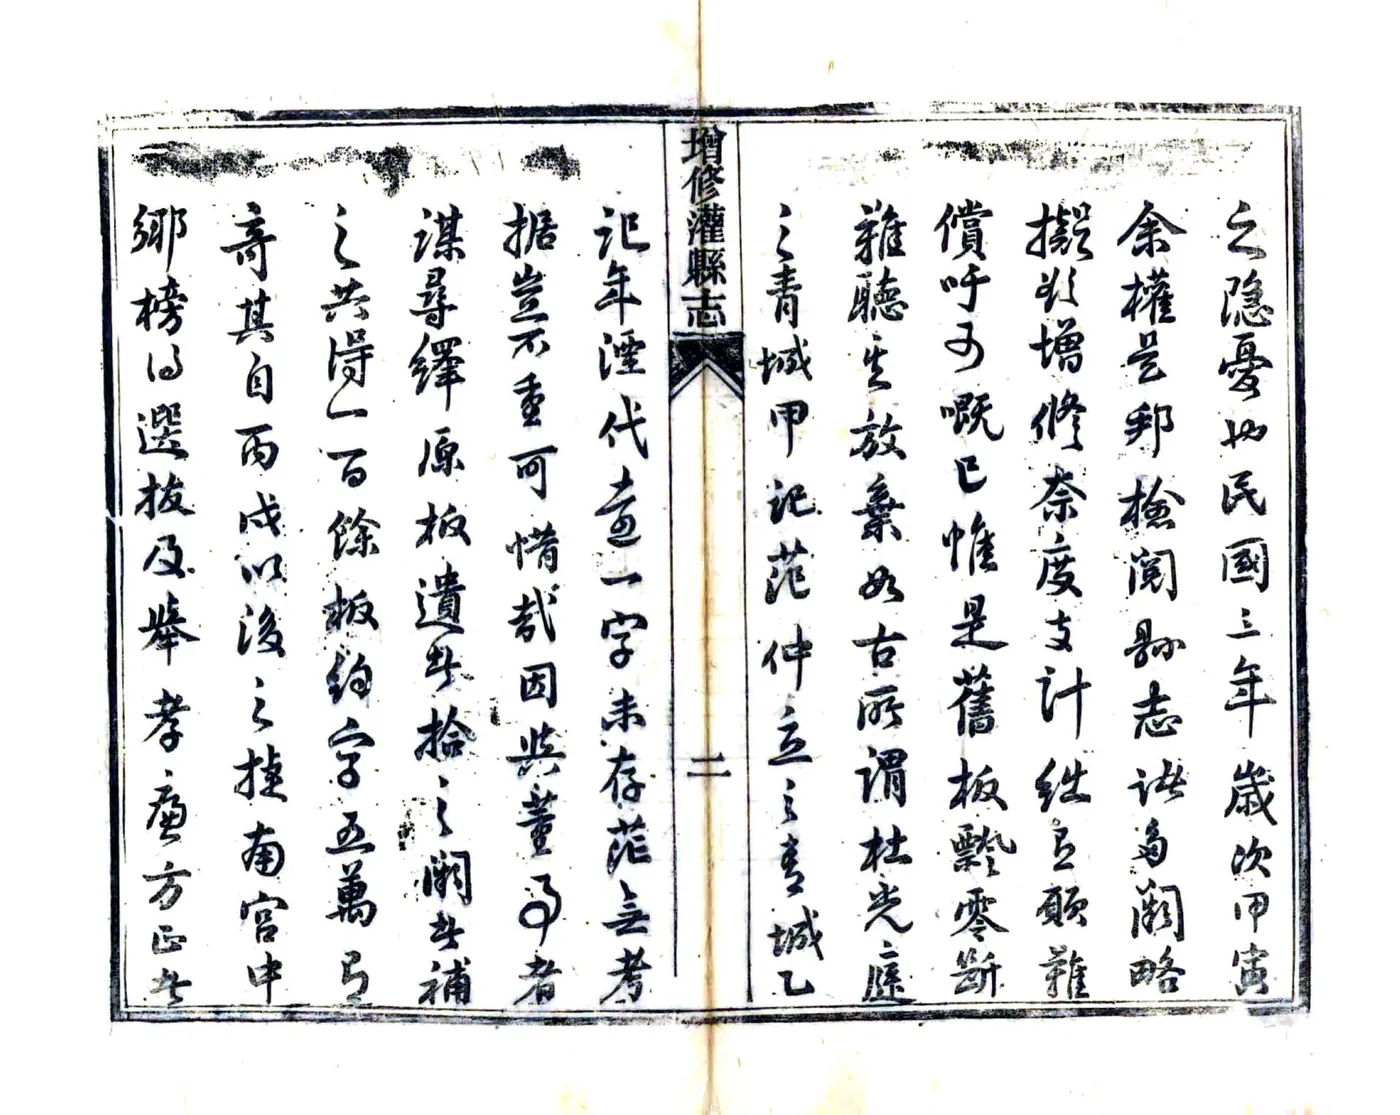 之隱憂也民國三年歲次甲寅
余權是邦檢閱縣志諸多闕略
擬欲增修奈度支計絀且願難
償吁可嘅已惟是舊板飄零斷
難聽其放棄如古所謂杜光庭
之青城甲記范仲立之青城乙
增修灌縣志
二
記年湮代遠一字未存茫無考
据豈不重可惜哉因與董事者
謀尋繹原板遺者拾之闕者補
之共得一百餘板約字五萬有
奇其自丙戌以後之捷南宮中
鄉榜得選拔及舉孝廉方正者